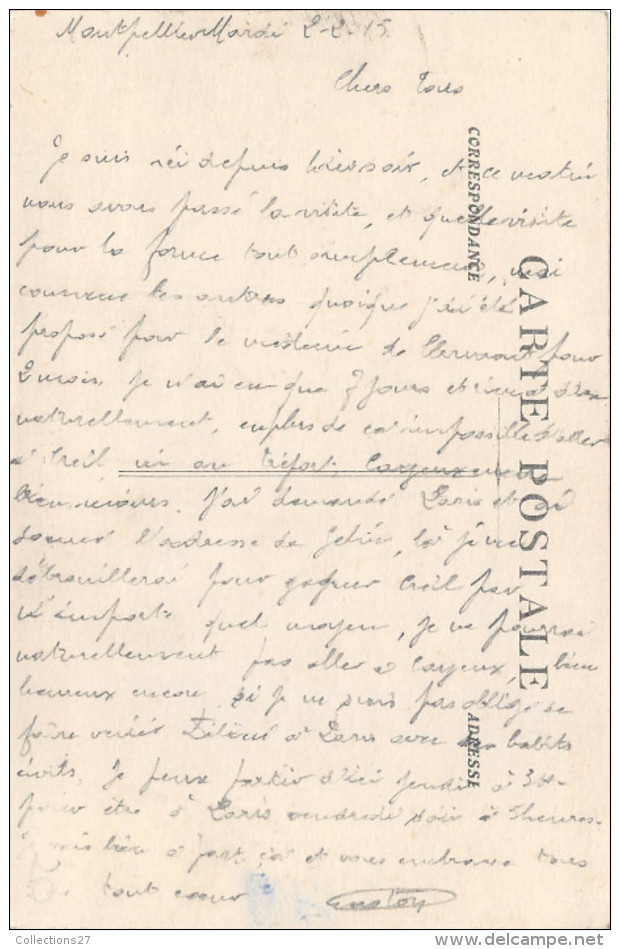 Montpellier Mardi 2-2-15
Chers Tous
Je suis ici depuis hier soir, et ce matin
nous avons passé la visite, et quelle visite
pour la forme tout simplement, moi
comme les autres quoique j'ai été
proposé par le médecin de Clermont pour
2 mois, je n'ai eu que 7 jours et rien
naturellement, en plus de ça impossible d'aller
à Creil ni au Tréfort, Cayeux encore
bien moins. J'ai demandé Paris et ai
donné l'adresse de là je me
débrouillerai pour gagner Creil par
n'importe quel moyen, je ne pourrai
naturellement pas aller à Cayeux, bien
heureux encore si je ne suis pas obligé de
faire venir à Paris avec habits
civils. Je peux partir d'ici jeudi à
pour être à Paris vendredi soir à 5 heures.
bien à part ça et vous embrasse tous
tout coeur
Gaston
CORRESPONDANCE
CARTE POSTALE
ADRESSE
Collections27
www.delcampe.net